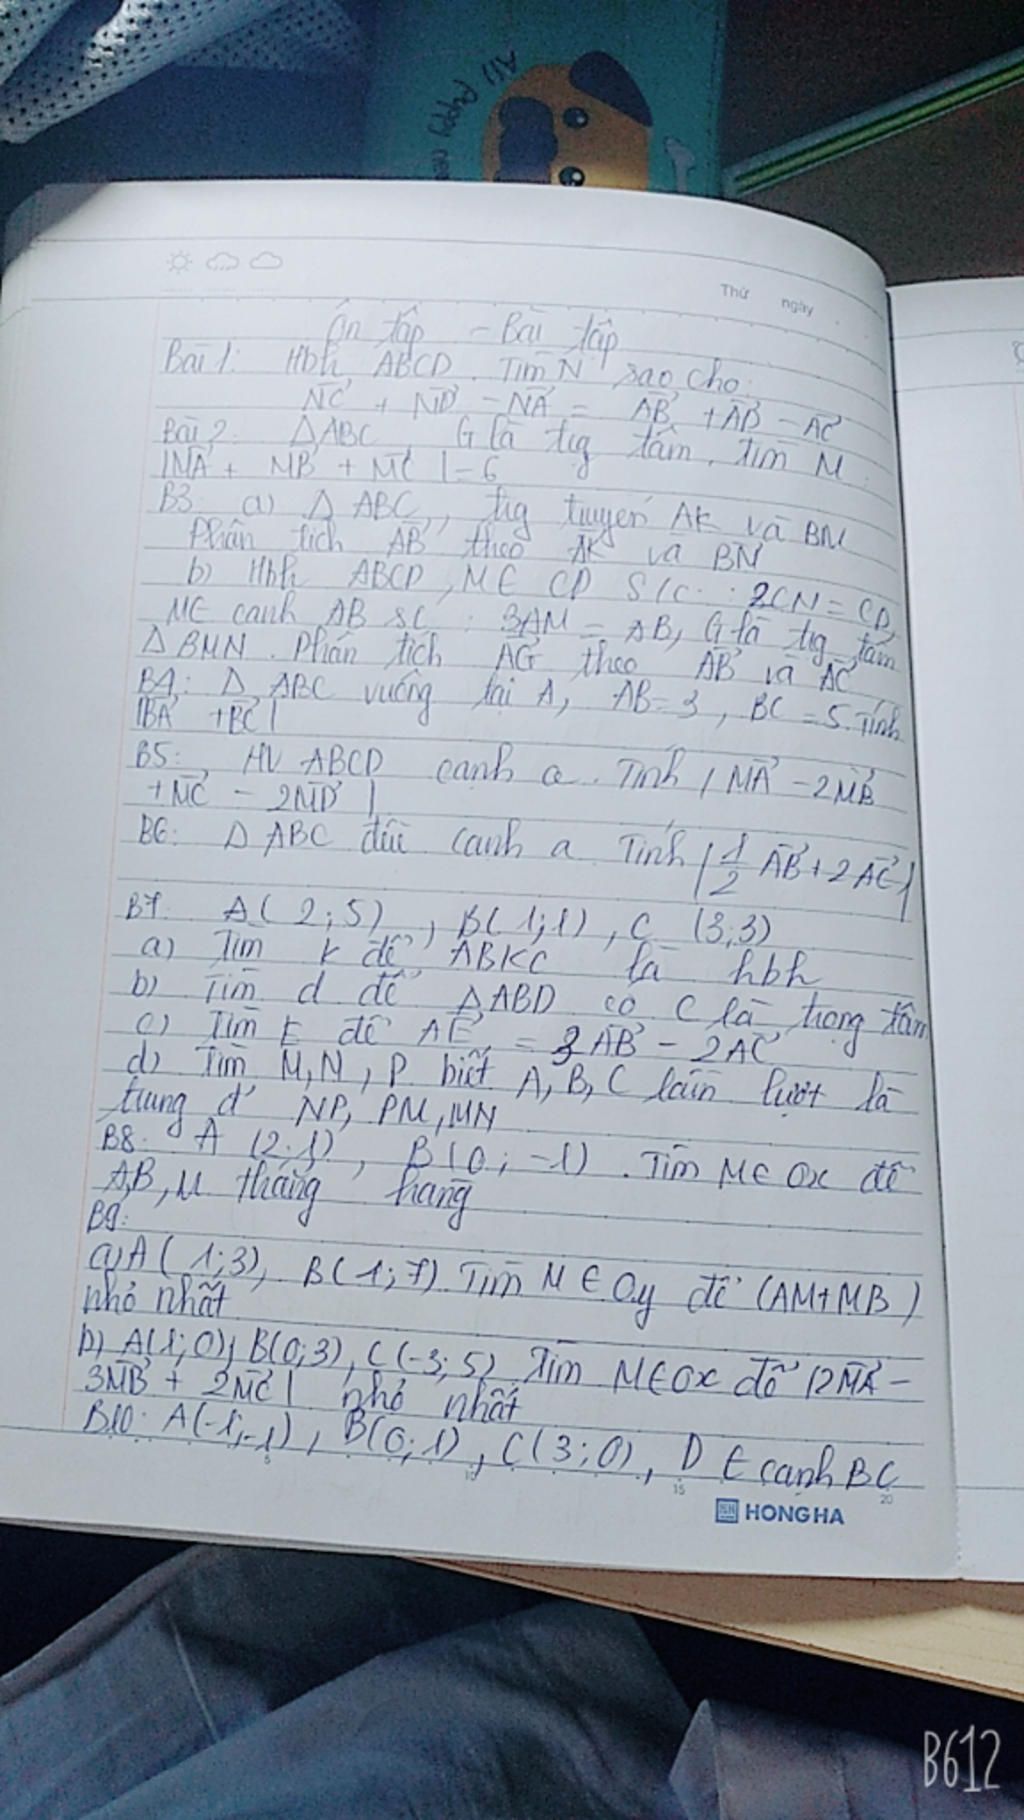 Puppy
Thứ ngày
Ôn tập - Bài tập
Bài 1: Hbh ABCD. Tìm N sao cho:
NC→ + ND→ - NA→ = AB→ + AD→ - AC→
Bài 2: ΔABC, G là tıg tâm. tìm M
|MA→ + MB→ + MC→| = 6
B3: a) Δ ABC, tıg tuyến AK và BM
Phân tích AB→ theo AK→ và BN→
b) Hbh ABCD, M ∈ CD S/C: 2CN = CD,
M ∈ cạnh AB SC: 3AM = AB, G là tıg tâm
Δ BMN. Phân tích AG→ theo AB→ và AC→
B4: Δ ABC vuông tại A, AB = 3, BC = 5. Tính
|BA→ + BC→|
B5: HV ABCD cạnh a. Tính |MA→ - 2MB→
+ MC→ - 2MD→|
B6: Δ ABC đều cạnh a. Tính |1/2 AB→ + 2AC→|
B7: A(2;5), B(1;1), C(3;3)
a) Tìm K để ABKC là hbh
b) Tìm d để ΔABD có C là trọng tâm
c) Tìm E để AE→ = 3AB→ - 2AC→
d) Tìm M, N, P biết A, B, C lần lượt là
trung đ' NP, PM, MN
B8: A(2;1), B(0;-1). Tìm M ∈ Ox để
A, B, M thẳng hàng
B9:
a) A(1;3), B(1;7) Tìm M ∈ Oy để (AM+MB)
nhỏ nhất
b) A(1;0), B(0;3), C(-3;5) Tìm M ∈ Ox để |2MA→ -
3MB→ + 2MC→| nhỏ nhất
B10: A(-1;-1), B(0;1), C(3;0), D ∈ cạnh BC
5 10 15 20
HONG HA
B612